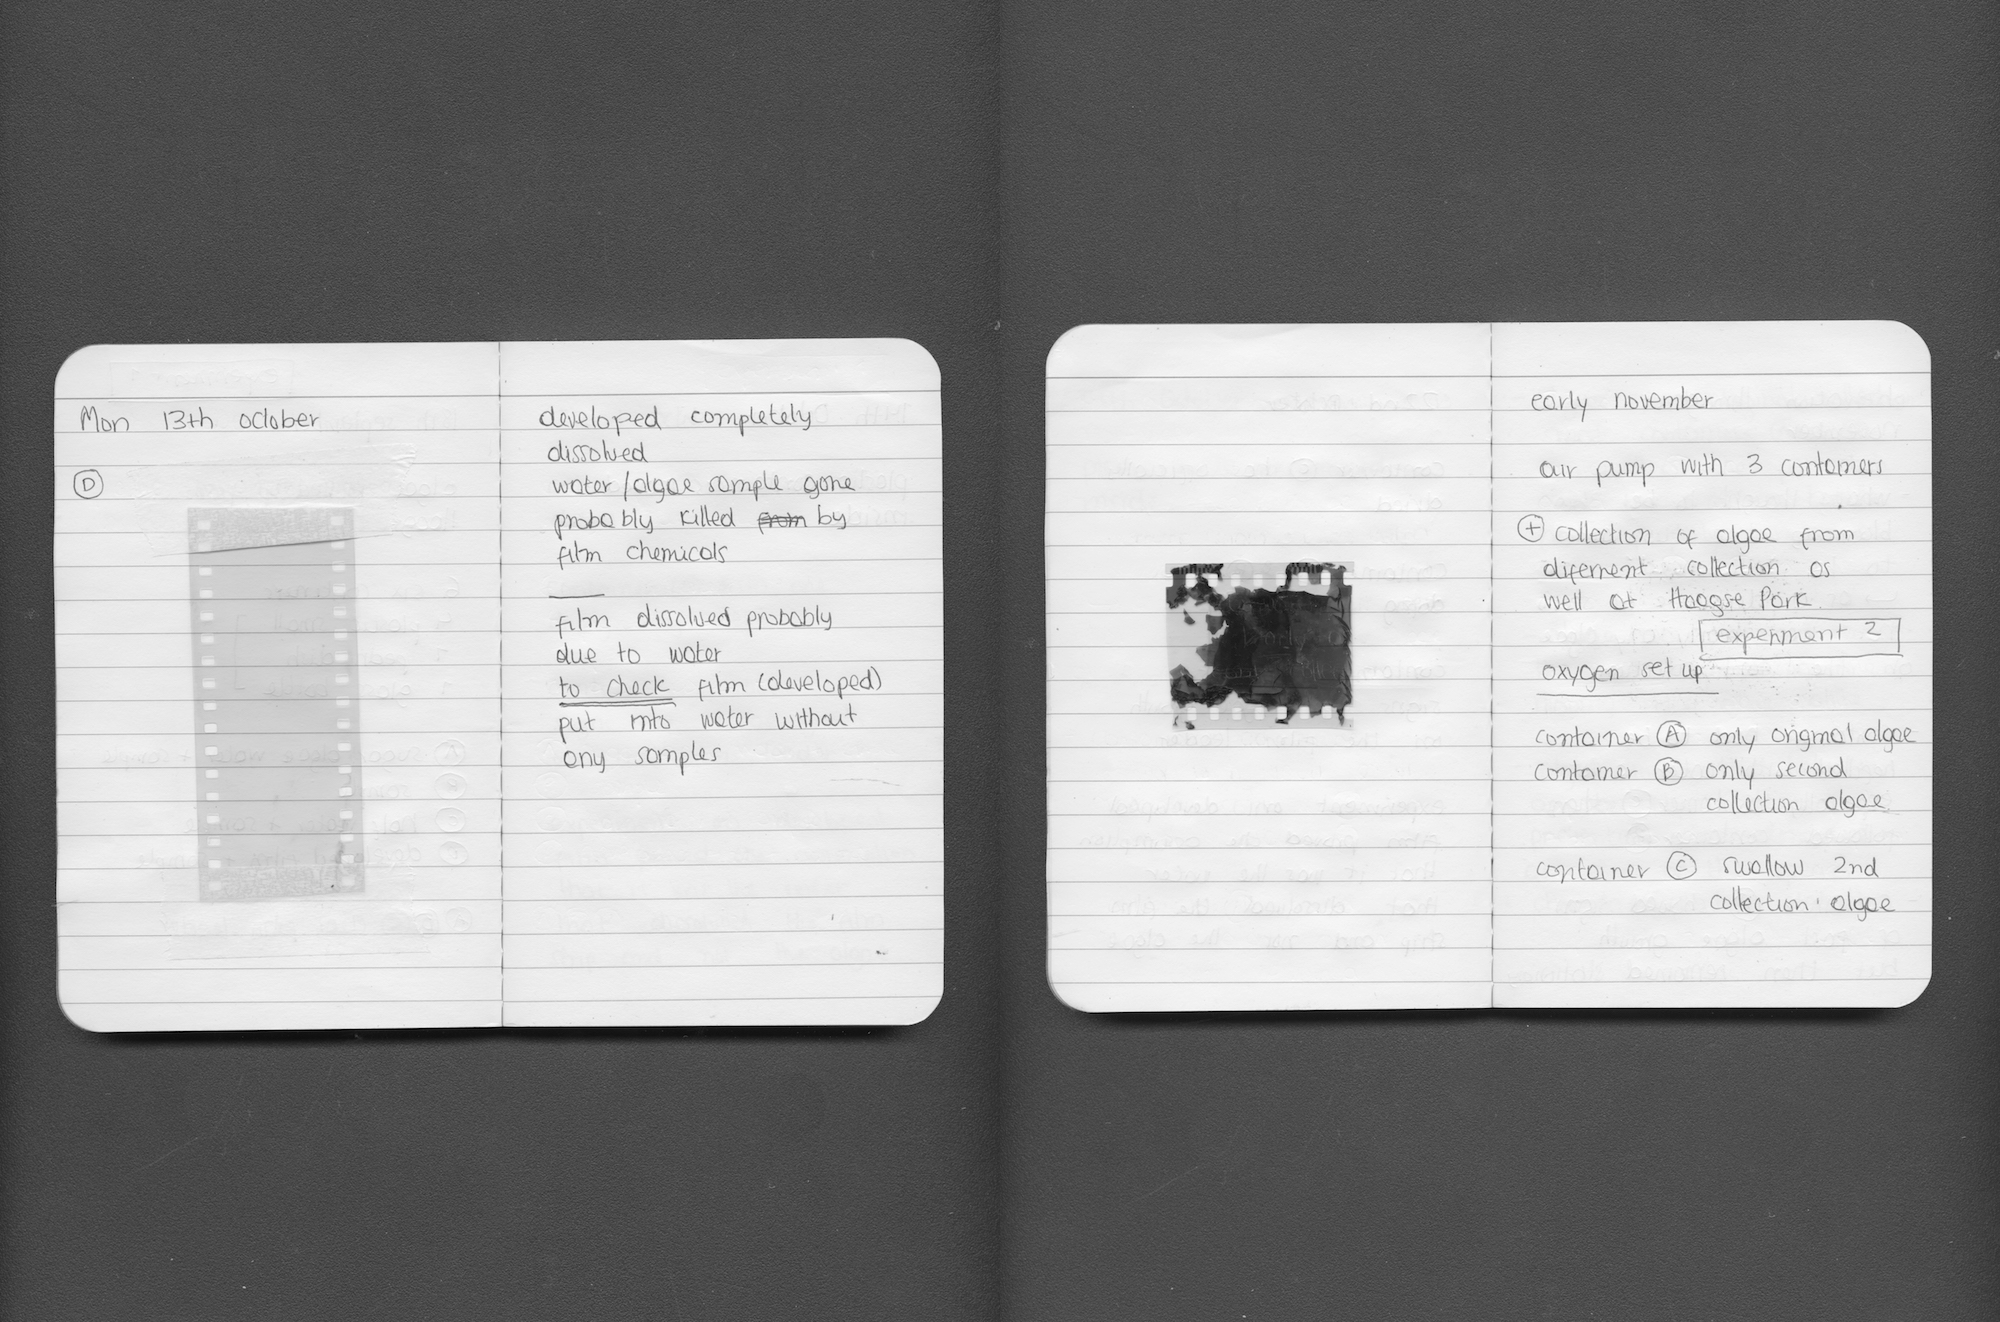 Mon 13th october
D
developed completely
dissolved
water/algae sample gone
probably killed from by
film chemicals
film dissolved probably
due to water
to check film (developed)
put into water without
any samples
early november
air pump with 3 containers
+ collection of algae from
diferrent collection as
well at Haagse Park
experiment 2
oxygen set up
container A only original algae
container B only second
collection algae
container C swallow 2nd
collection algae